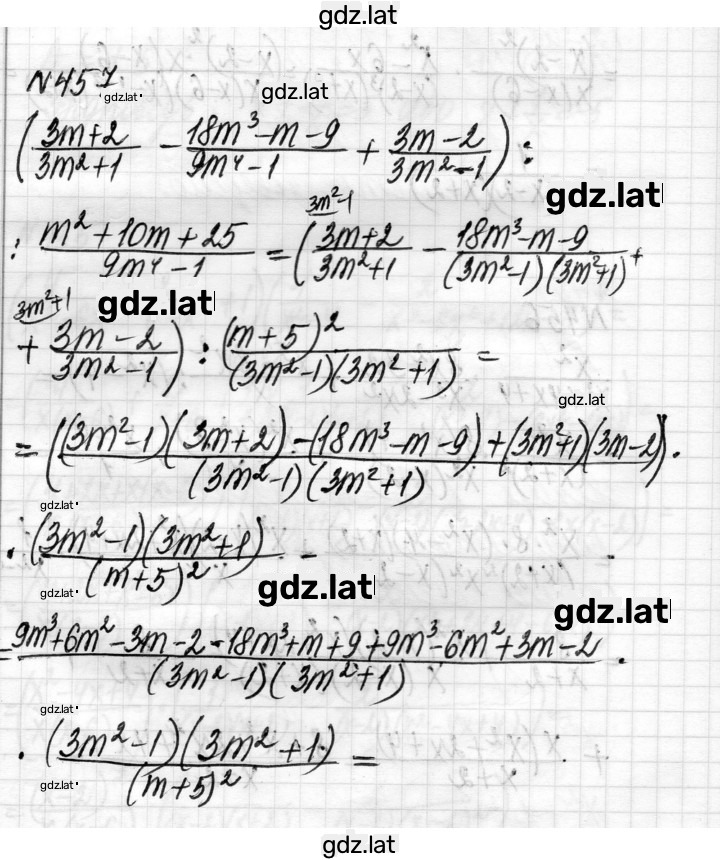 gdz.lat
N 457
gdz.lat
gdz.lat
(3m+2)/(3m²+1) - (18m³-m-9)/(9m⁴-1) + (3m-2)/(3m²-1)) :
gdz.lat
: (m²+10m+25)/(9m⁴-1) = ((3m+2)/(3m²+1) - (18m³-m-9)/((3m²-1)(3m²+1)) +
3m²-1
3m²+1
gdz.lat
+ (3m-2)/(3m²-1)) : (m+5)²/((3m²-1)(3m²+1)) =
gdz.lat
= (((3m²-1)(3m+2)-(18m³-m-9)+(3m²+1)(3m-2))/((3m²-1)(3m²+1))) ·
gdz.lat
· ((3m²-1)(3m²+1))/(m+5)² =
gdz.lat
gdz.lat
gdz.lat
= (9m³+6m²-3m-2-18m³+m+9+9m³-6m²+3m-2)/((3m²-1)(3m²+1)) ·
gdz.lat
· ((3m²-1)(3m²+1))/(m+5)² =
gdz.lat
gdz.lat